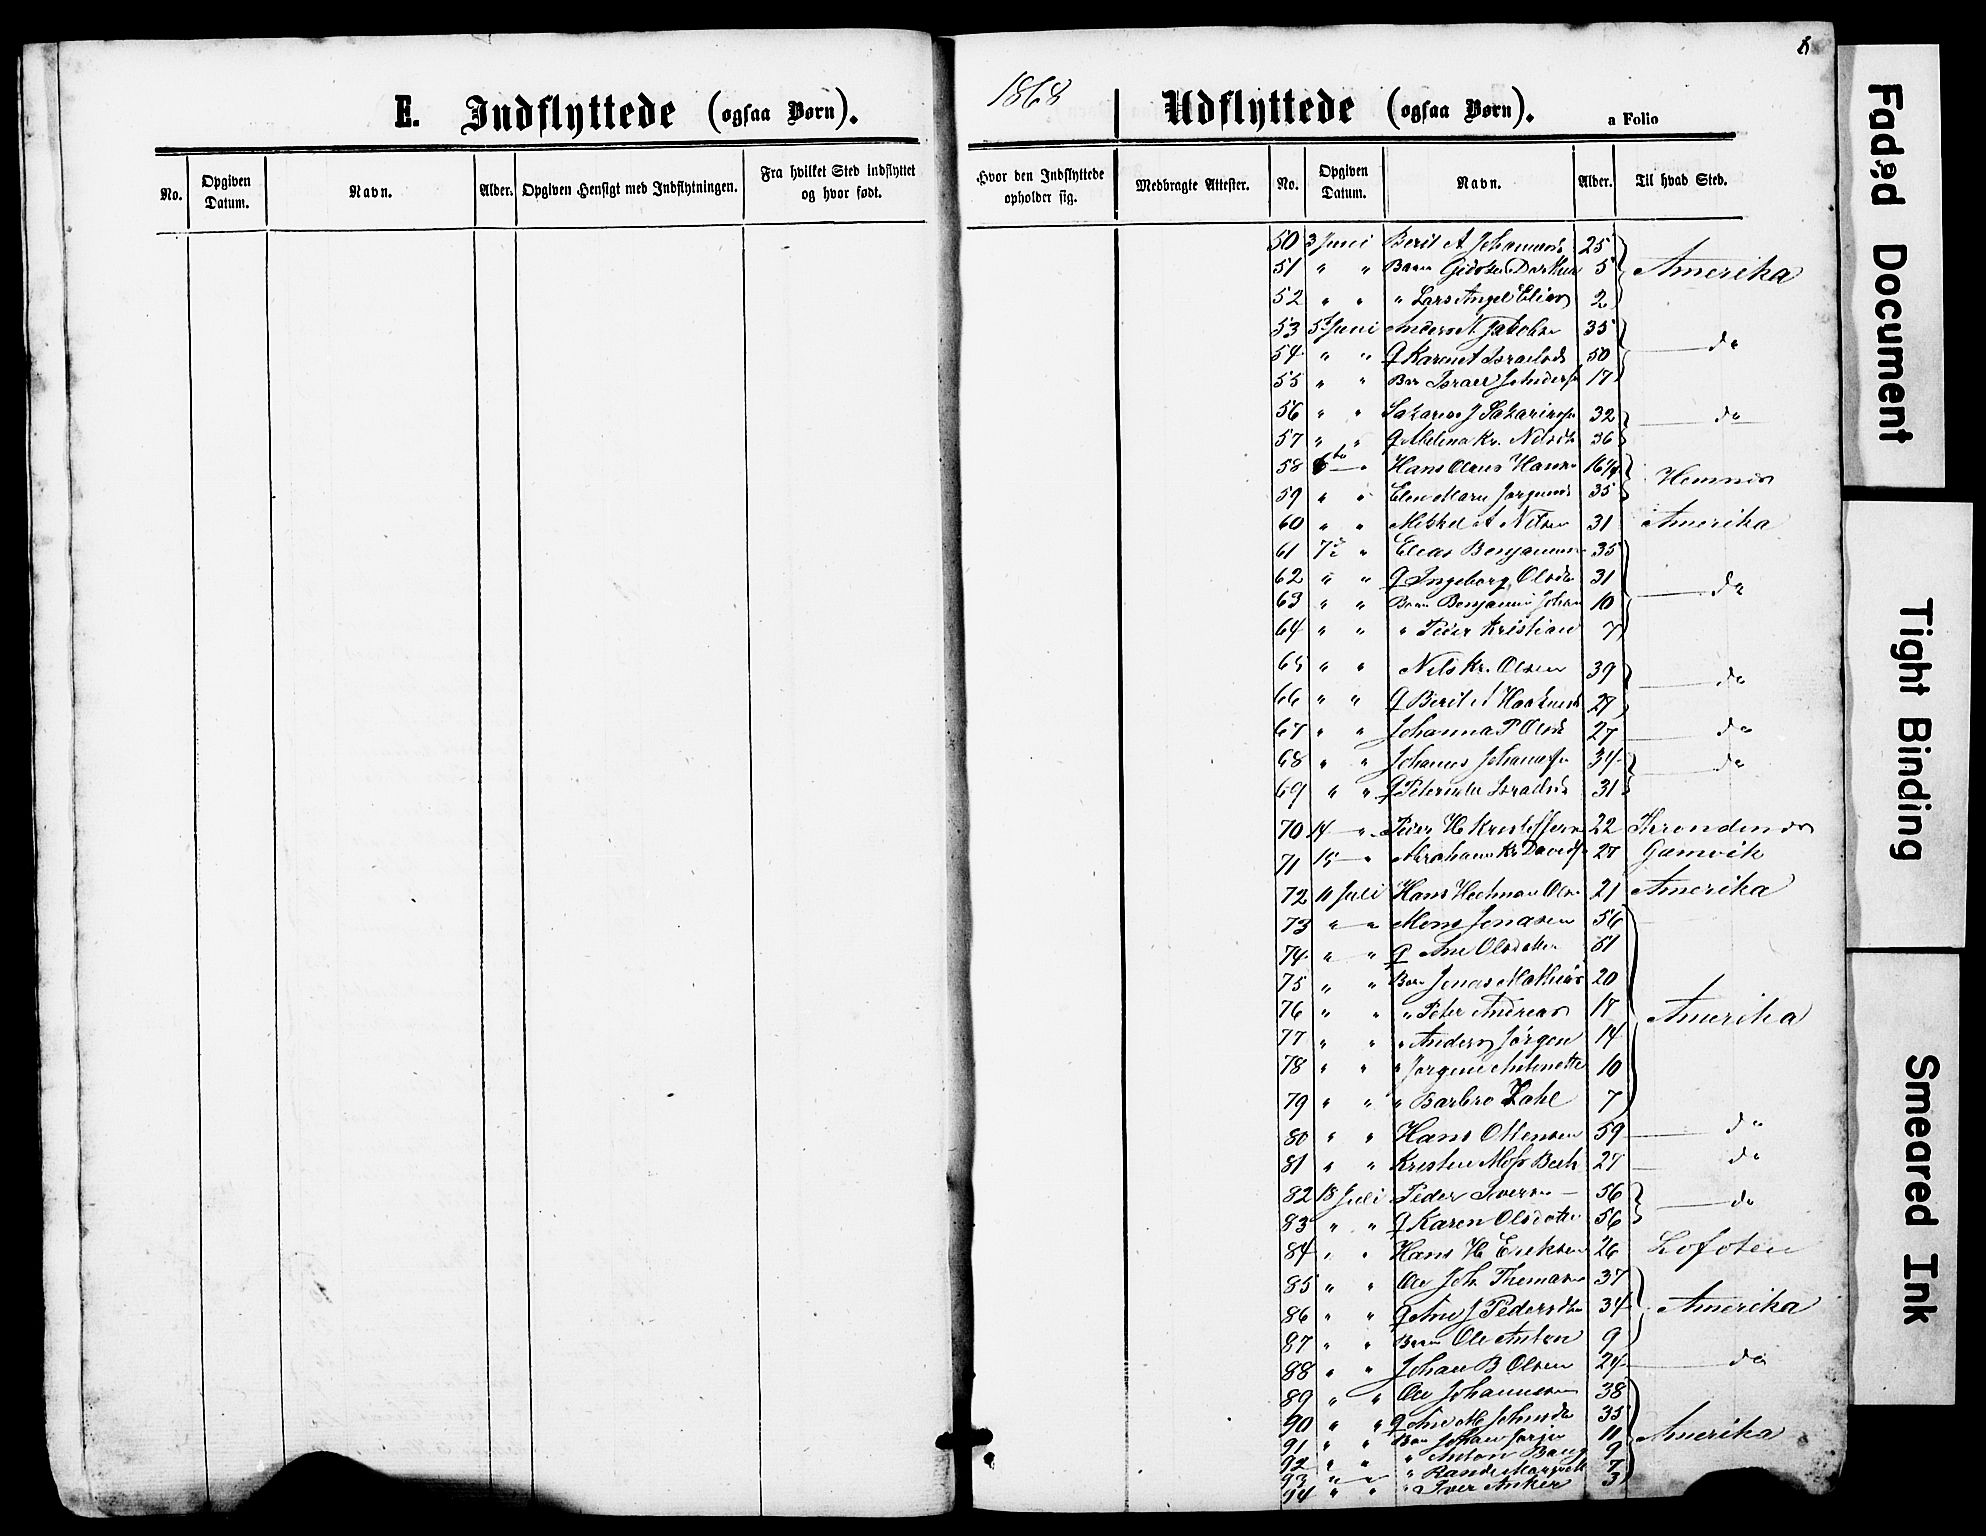 8
E. Indflyttede (ogsaa Børn).
1868 Udflyttede (ogsaa Børn). a Folio
No. Opgiven Datum. Navn. Alder. Opgiven Hensigt med Indflytningen. Fra hvilket Sted indflyttet og hvor født.
Hvor den Indflyttede opholder sig. Medbragte Attester. No. Opgiven Datum. Navn. Alder. Til hvad Sted.
50 3 Juni Berit A 25
51 " " Barn 5 Amerika
52 " " " Lars Angel Elias 2
53 5 Juni Anders N Jakobsn 35
54 " " Q 50 do
55 " " Barn Israel 17
56 " " 32 do
57 " " Q Kr. 36
58 6te " Hans Olaus Hansn 16
59 " " 35 Hemnes
60 " " Mikkel A Nilsen 31 Amerika
61 7de " Elias 35
62 " " Q Ingeborg Olsdr 31 do
63 " " Barn Benjamin Johan 10
64 " " " Peder Kristian 7
65 " " Nils Kr. Olsen 39
66 " " Q Berit 27 do
67 " " Johanna P Olsdr 27 do
68 " " Johanes 34 do
69 " " Q 31
70 14 " Peder H 22 Throndenes
71 15 " Abraham Kr Davids 27 Gamvik
72 11 Juli Hans Olsn 21 Amerika
73 " " Mons Jonasen 56
74 " " Q Ane Olsdatter 51
75 " " Barn Jonas Mathias 20
76 " " " Peter Andreas 17 Amerika
77 " " " Anders Jørgen 14
78 " " " 10
79 " " " Barbro Zahl 7
80 " " Hans Ottensen 59 do
81 " " Moss Bech 27 do
82 18 Juli Peder Iversn 56
83 " " Q Karen Olsdatter 56 do
84 " " Hans H Eriksen 26 Lofoten
85 " " Ole Joh Thomasn 37
86 " " Q Ane J Pedersdtr 34 Amerika
87 " " Barn Ole Anton 9
88 " " Johan B Olsen 24 do
89 " " Ole Johannesen 38
90 " " Q Ane M Johnsdr 35
91 " " Barn Johan Jørgen 11 Amerika
92 " " " Anton Bang 9
93 " " " 7
94 " " " Iver Anker 3
Faded Document
Tight Binding
Smeared Ink